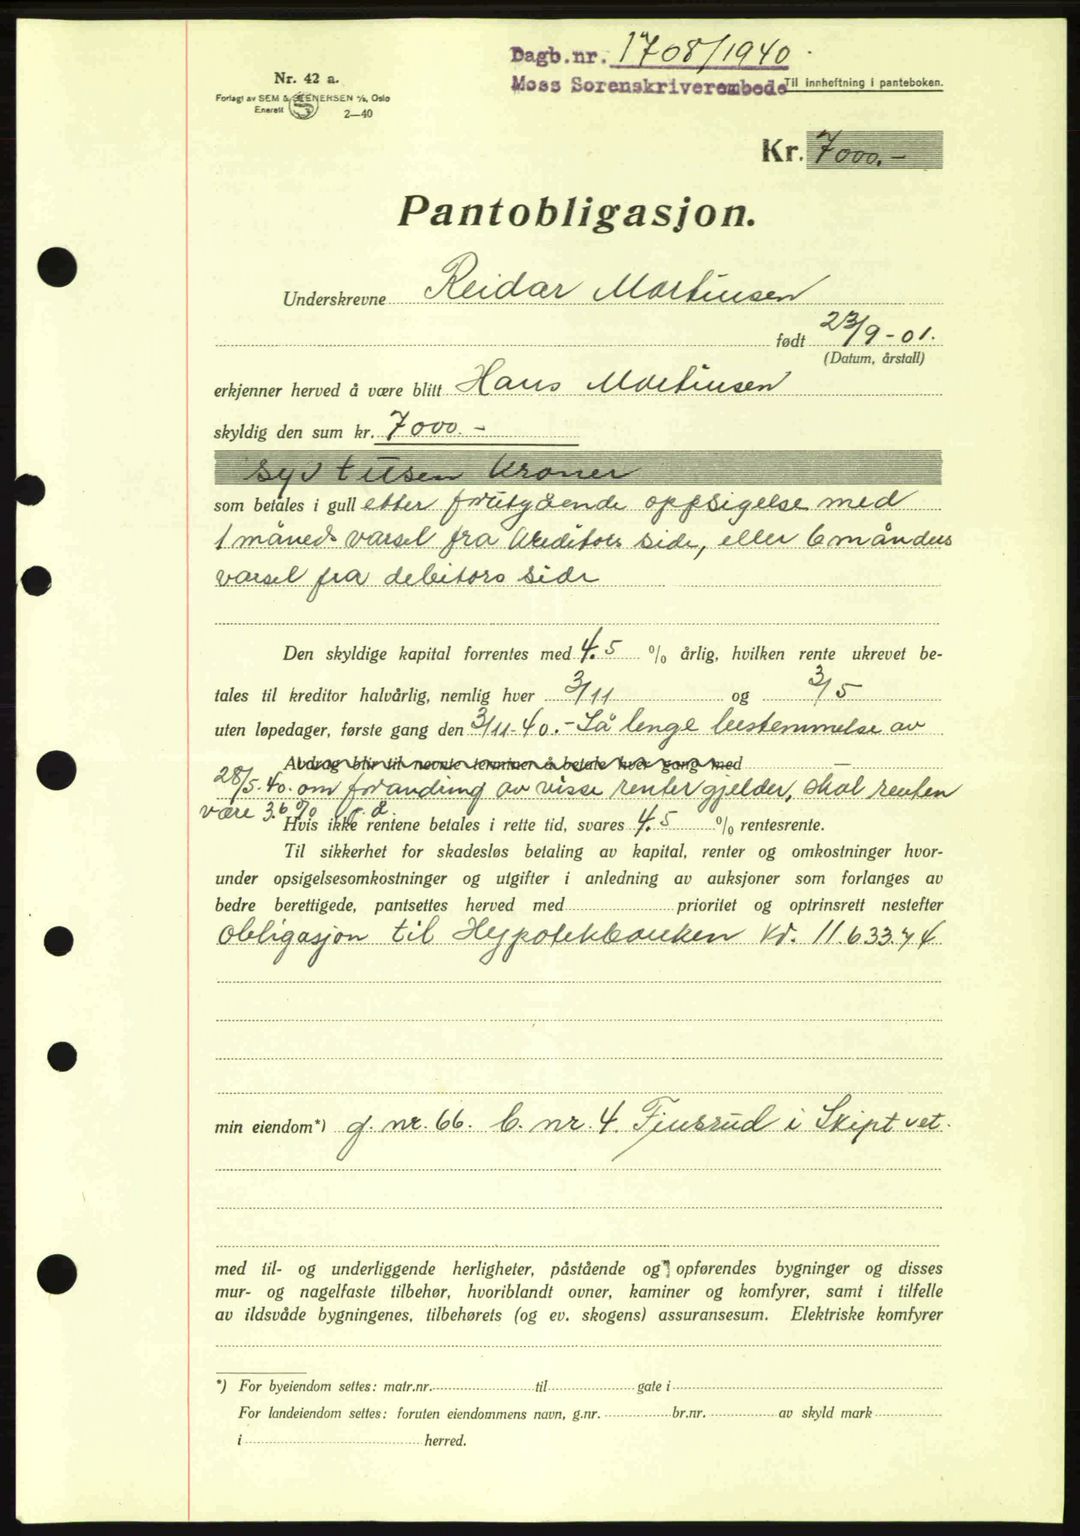 Dagb.nr. 1708/1940
Moss Sorenskriverembede Til innheftning i panteboken.
Nr. 42 a.
Forlagt av SEM & STENERSEN A/S, Oslo
Enerett
2—40
Kr. 7000.-
Pantobligasjon.
Underskrevne Reidar Martinsen
født 23/9-01.
(Datum, årstall)
erkjenner herved å være blitt Hans Martinsen
skyldig den sum kr. 7000.-
syv tusen kroner
som betales i gull etter forutgående oppsigelse med
1 måneds varsel fra kreditors side, eller 6 måneders
varsel fra debitors side
Den skyldige kapital forrentes med 4.5 % årlig, hvilken rente ukrevet be-
tales til kreditor halvårlig, nemlig hver 3/11 og 3/5
uten løpedager, første gang den 3/11-40.- Så lenge bestemmelse av
Avdrag blir til nevnte terminer å betale hver gang med
28/5-40. om forandring av visse renter gjelder, skal renten
være 3.6 % p. a.
Hvis ikke rentene betales i rette tid, svares 4.5 % rentesrente.
Til sikkerhet for skadesløs betaling av kapital, renter og omkostninger hvor-
under opsigelsesomkostninger og utgifter i anledning av auksjoner som forlanges av
bedre berettigede, pantsettes herved med prioritet og optrinsrett nestefter
obligasjon til Hypotekbanken kr. 11.633.74
min eiendom*) g. nr. 66. b. nr. 4. Finsrud i Skiptvet.
med til- og underliggende herligheter, påstående og opførendes bygninger og disses
mur- og nagelfaste tilbehør, hvoriblandt ovner, kaminer og komfyrer, samt i tilfelle
av ildsvåde bygningenes, tilbehørets (og ev. skogens) assuransesum. Elektriske komfyrer
*) For byeiendom settes: matr.nr. til gate i
For landeiendom settes: foruten eiendommens navn, g.nr. br.nr. av skyld mark
i herred.